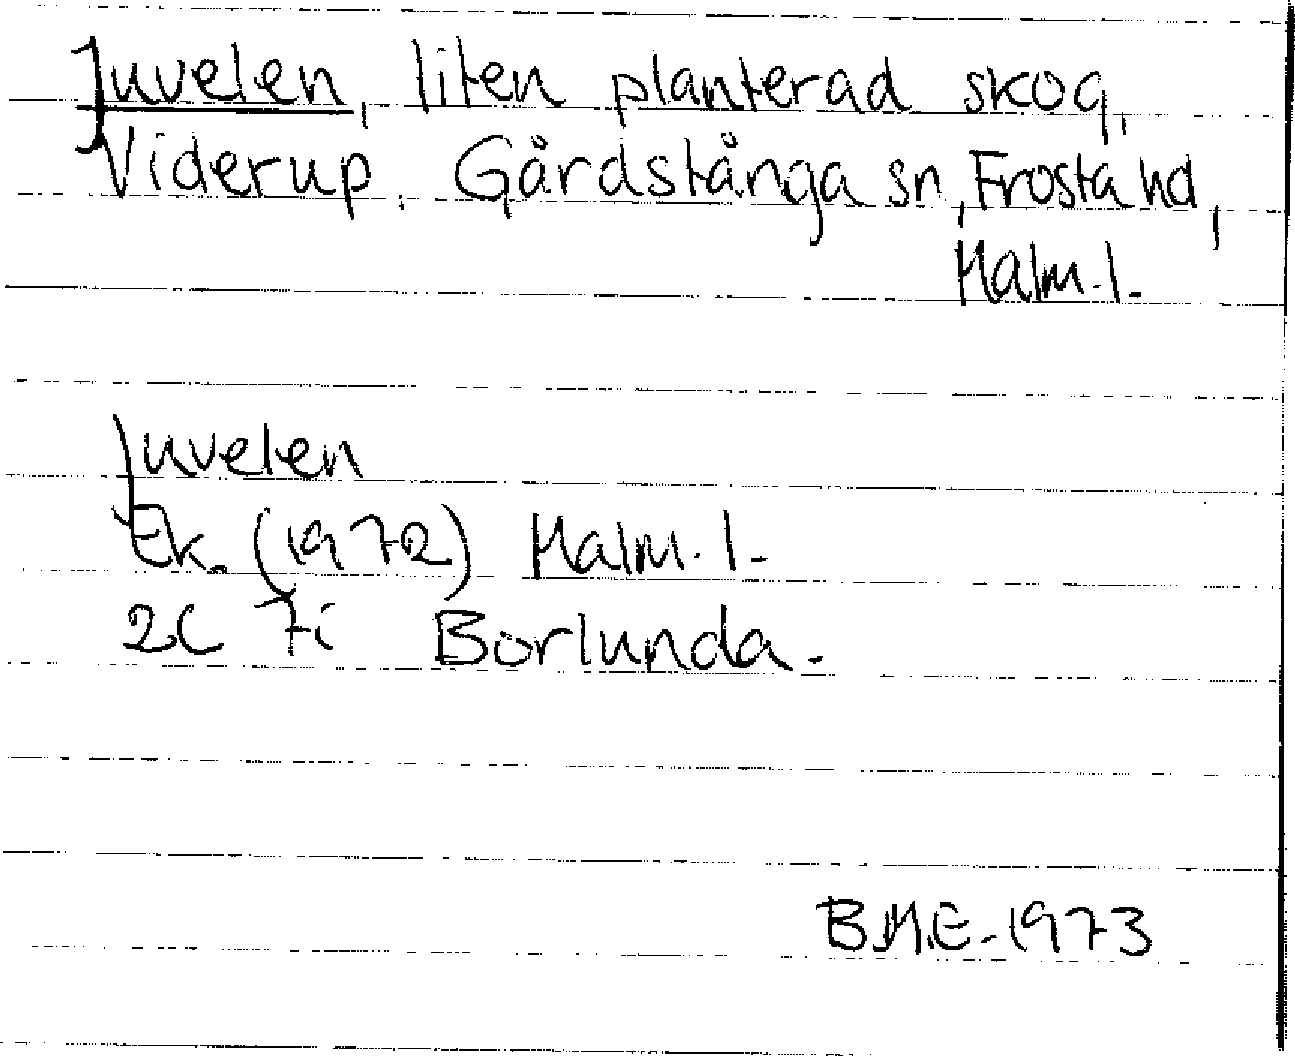 Juvelen, liten planterad skog,
Viderup. Gårdstånga sn, Frosta hd,
Malm. l.
Juvelen
Ek. (1972) Malm. l.
2C 7i Borlunda.
B.M.E. 1973